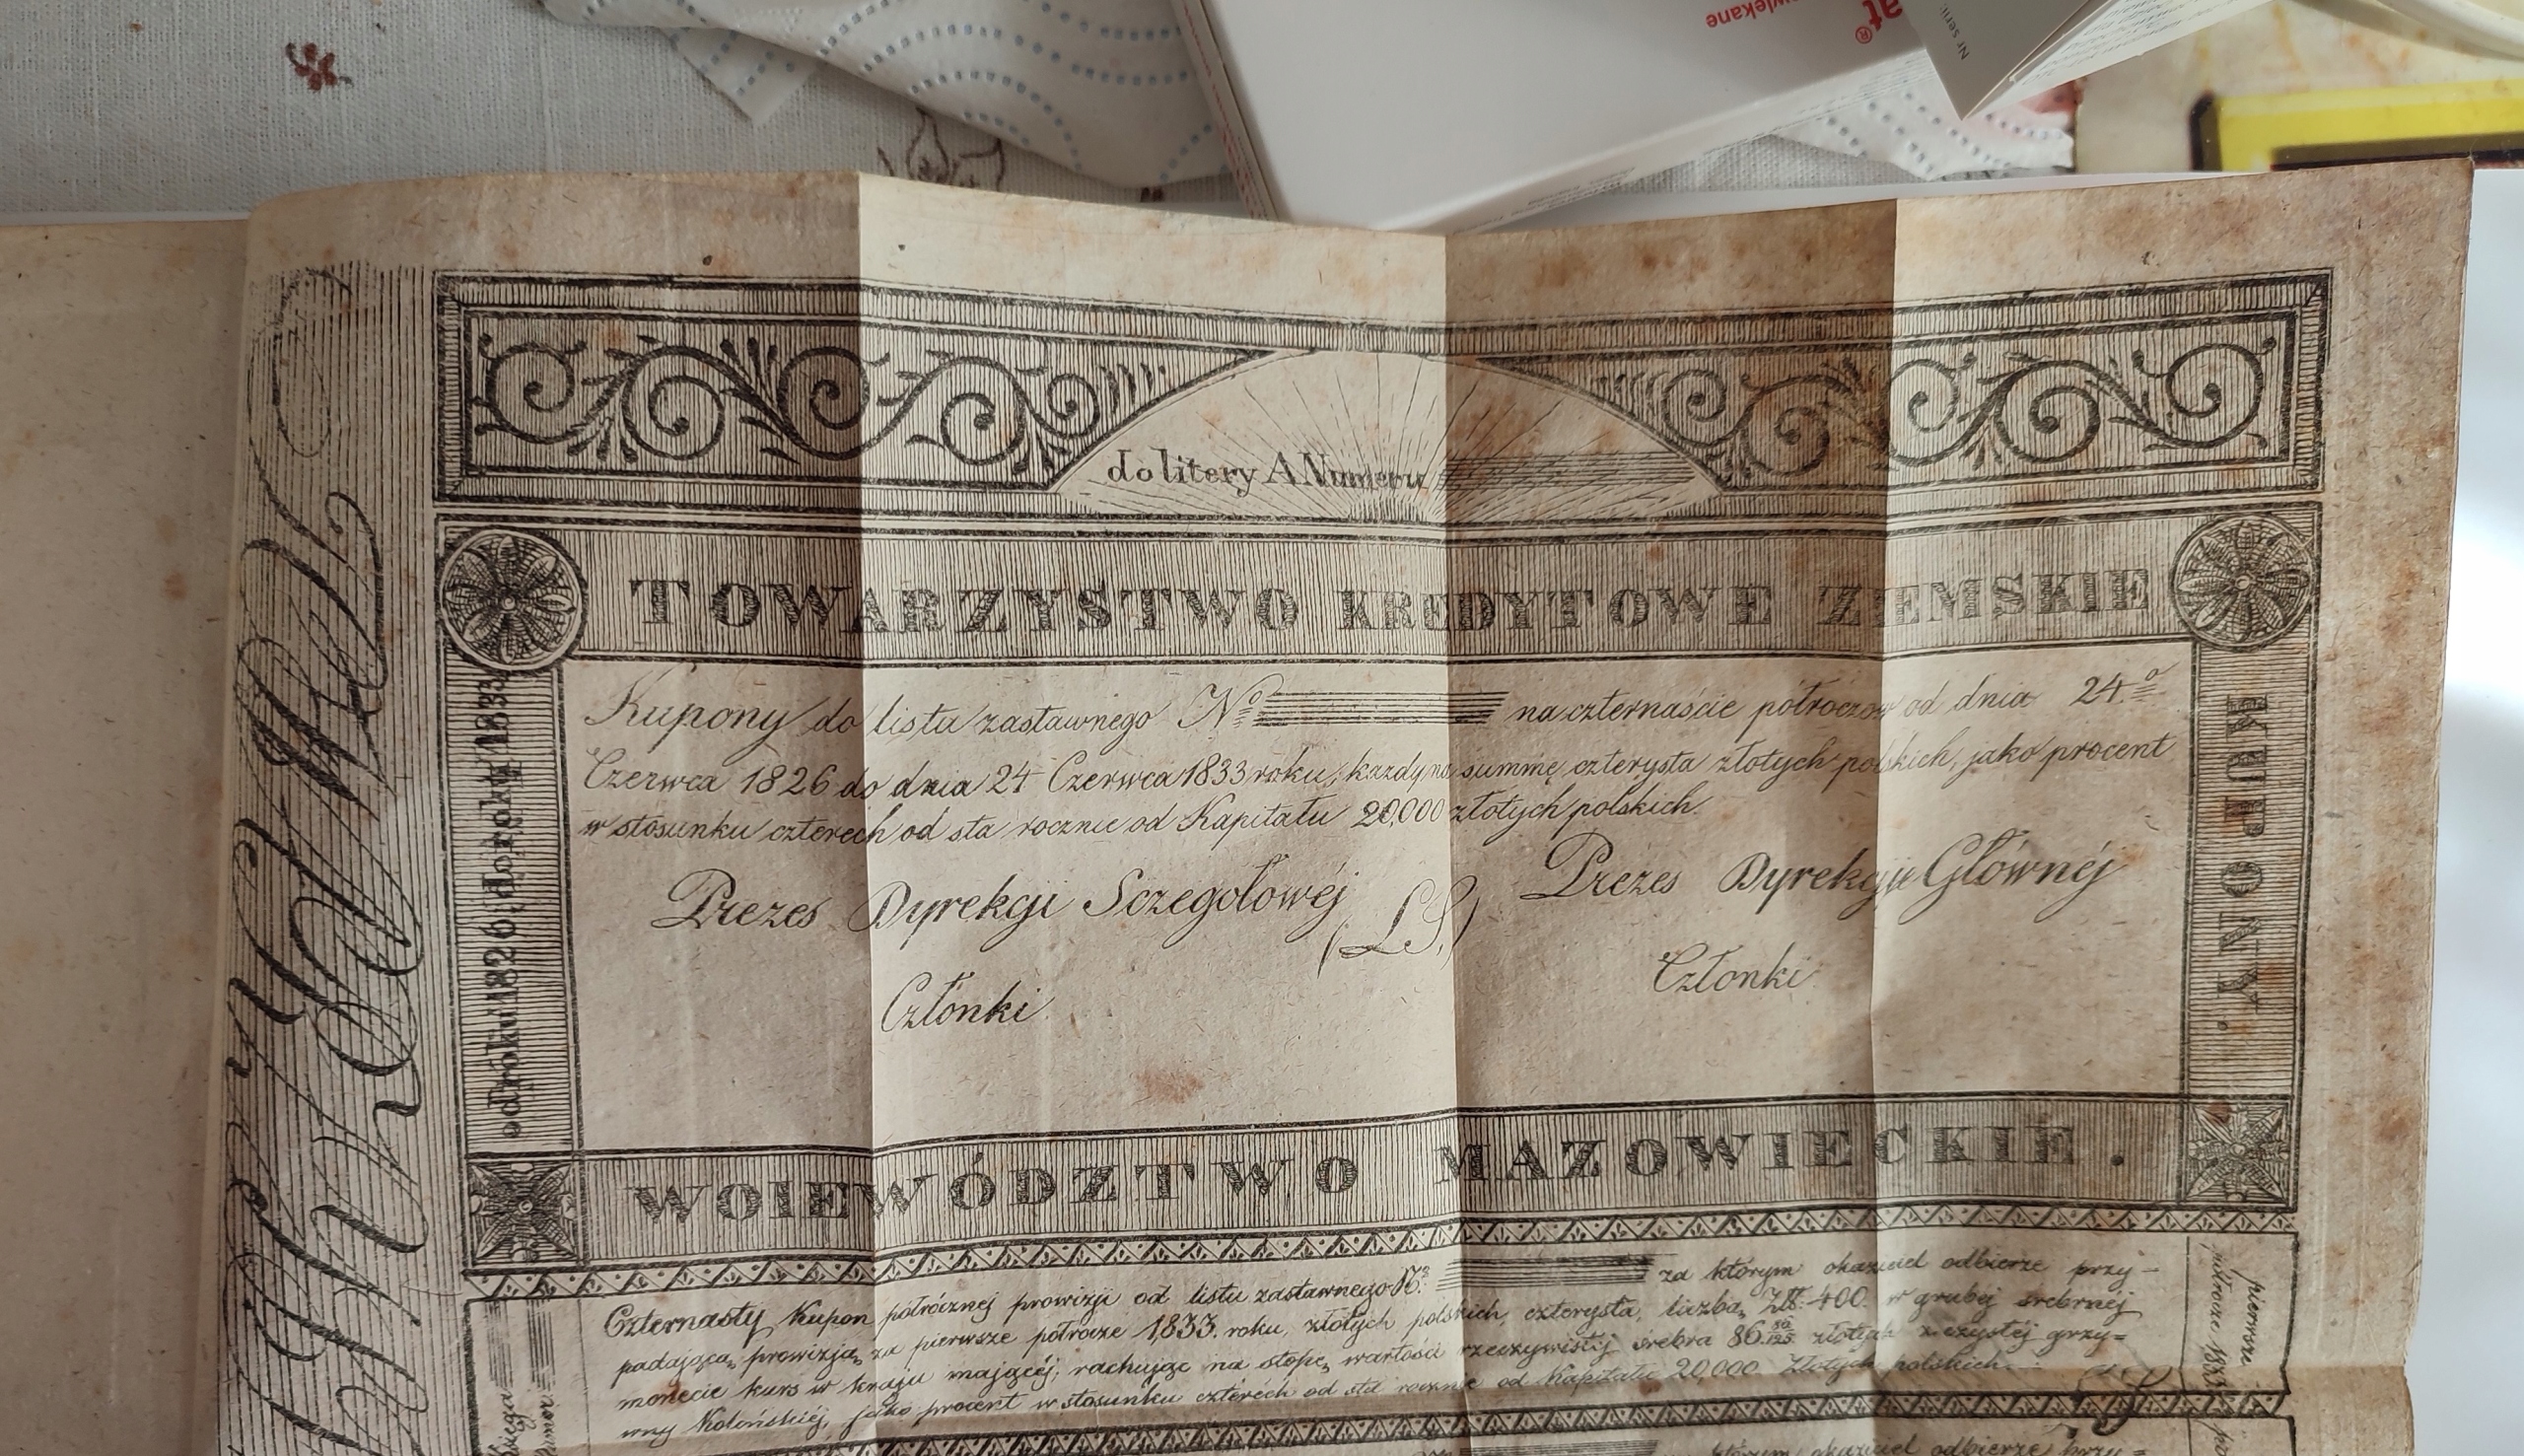 wlekane
at®
Nr serii:
do litery A Numeru
TOWARZYSTWO KREDYTOWE ZIEMSKIE
od roku 1826 do roku 1833
KUPONY.
Kupony do listu zastawnego No na czternaście półroczów od dnia 24.o
Czerwca 1826 do dnia 24 Czerwca 1833 roku, każdy na summę czterysta złotych polskich, jako procent
w stosunku czterech od sta rocznie od Kapitału 20,000 złotych polskich.
Prezes Dyrekcji Sczegołowéj (LS.) Prezes Dyrekcyje Głównéj
Członki Członki
WOIEWÓDZTWO MAZOWIECKIE.
Czternasty Kupon półrocznej prowizji od listu zastawnego N. za którym okaziciel odbierze przy-
padającą prowizją za pierwsze półrocze 1833. roku, złotych polskich czterysta, liczbą Zł. 400. w grubéj srebrnéj
monecie kurs w kraju mającéj, rachując na stopę wartości rzeczywistéj srebra 86 50/125 złotych z czystéj grzy=
wny Kolońskiéj, jako procent w stosunku czterech od sta rocznie od Kapitału 20,000 Złotych polskich.
LS
Księga
Numer
pierwsze
półrocze 1833
którym okaziciel odbierze przy=